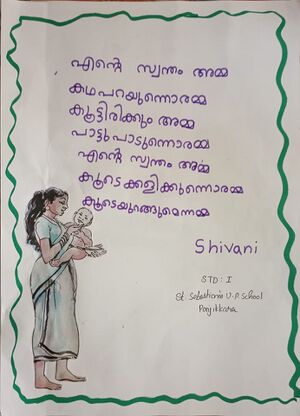 എന്റെ സ്വന്തം അമ്മ
കഥപറയുന്നൊരമ്മ
കൂട്ടിരിക്കും അമ്മ
പാട്ടുപാടുന്നൊരമ്മ
എന്റെ സ്വന്തം അമ്മ
കൂടെക്കളിക്കുന്നൊരമ്മ
കൂടെയുറങ്ങുമെന്നമ്മ
Shivani
STD: I
St. Sebastian's U.P. School